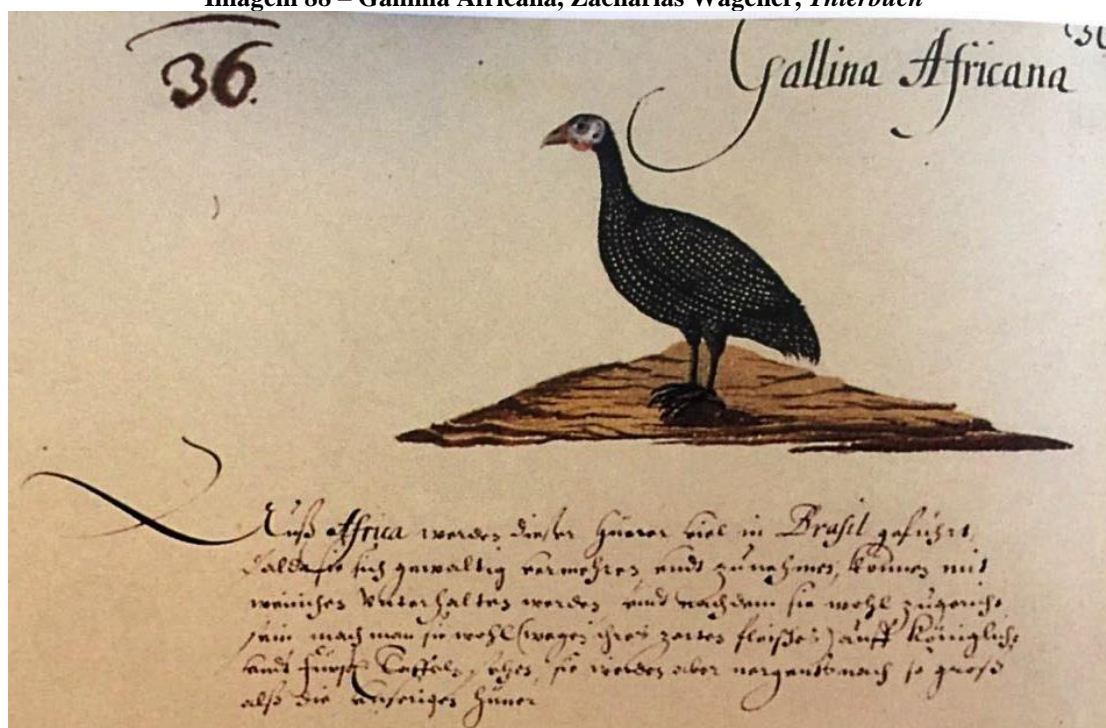 Imagem 88 – Gallina Africana, Zacharias Wagener, Thierbuch
36.
Gallina Africana
Auß Africa werden dieser Hüner viel in Brasil geführt,
sich gewaltig vermehren undt zunehmen, können mit
wenichen Unterhalten werden und nachdem sie wohl zugericht
sein mach man sie wohl (wegen ihres zarten fleisches) auff Königliche
undt fürstl Taffeln sehen, sie werden aber nergents nach so groß
alß die unserigen Hüner